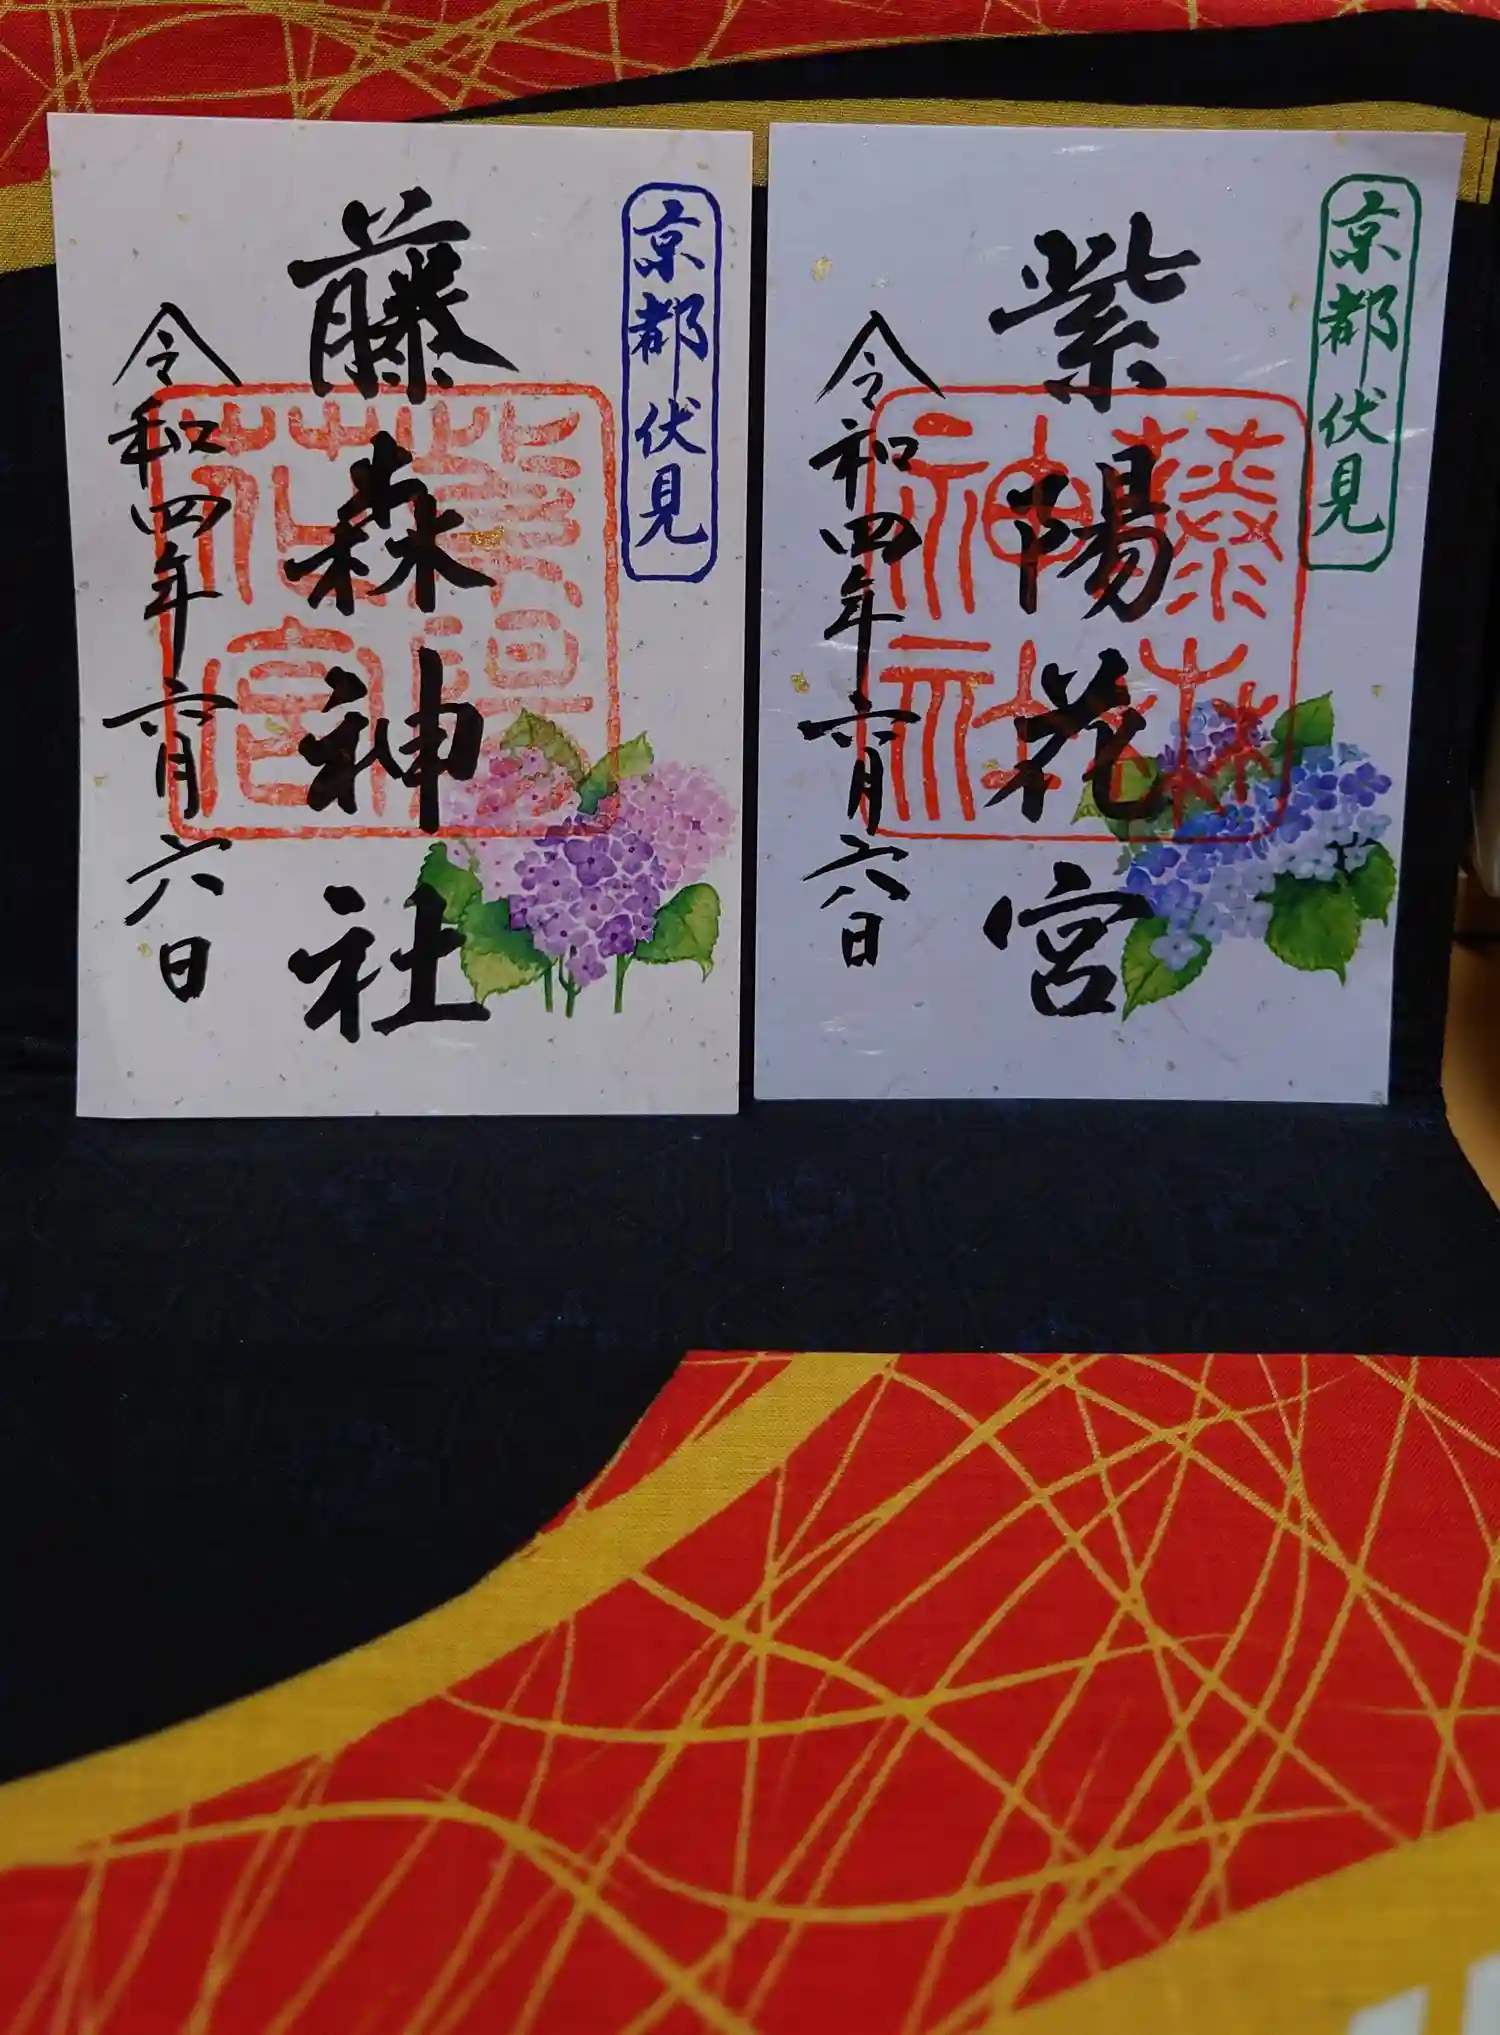 京都伏見
藤森神社
令和四年六月六日
紫陽花宮
京都伏見
紫陽花宮
令和四年六月六日
藤森神社